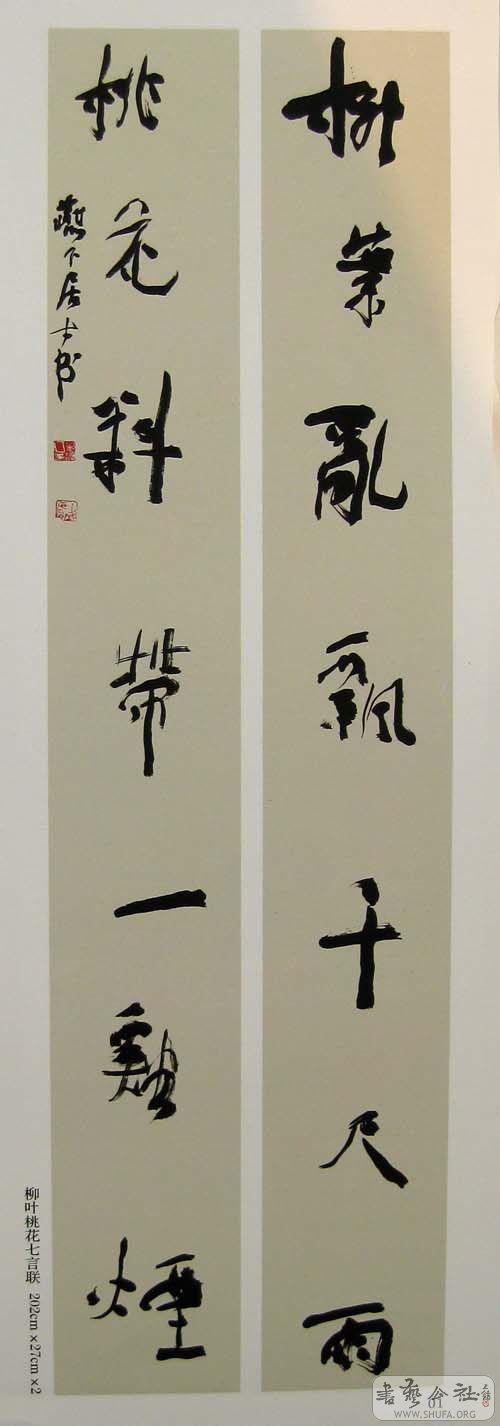 柳葉亂飄千尺雨
桃花斜帶一谿煙
下居士书
柳叶桃花七言联 202cm×27cm×2
書藝公社
WWW.SHUFA.ORG